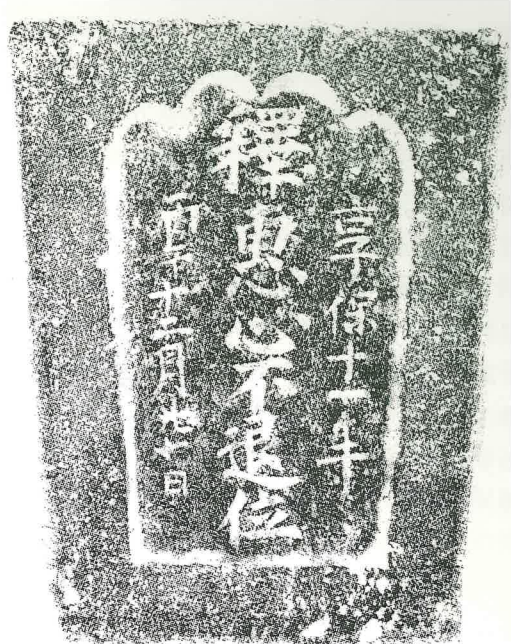 享保十一年
釋恵心不退位
丙午十二月廿七日